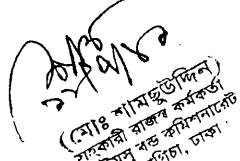 (মোঃ শামছুউদ্দিন)
সহকারী রাজস্ব কর্মকর্তা
বন্ড কমিশনারেট
ঢাকা।